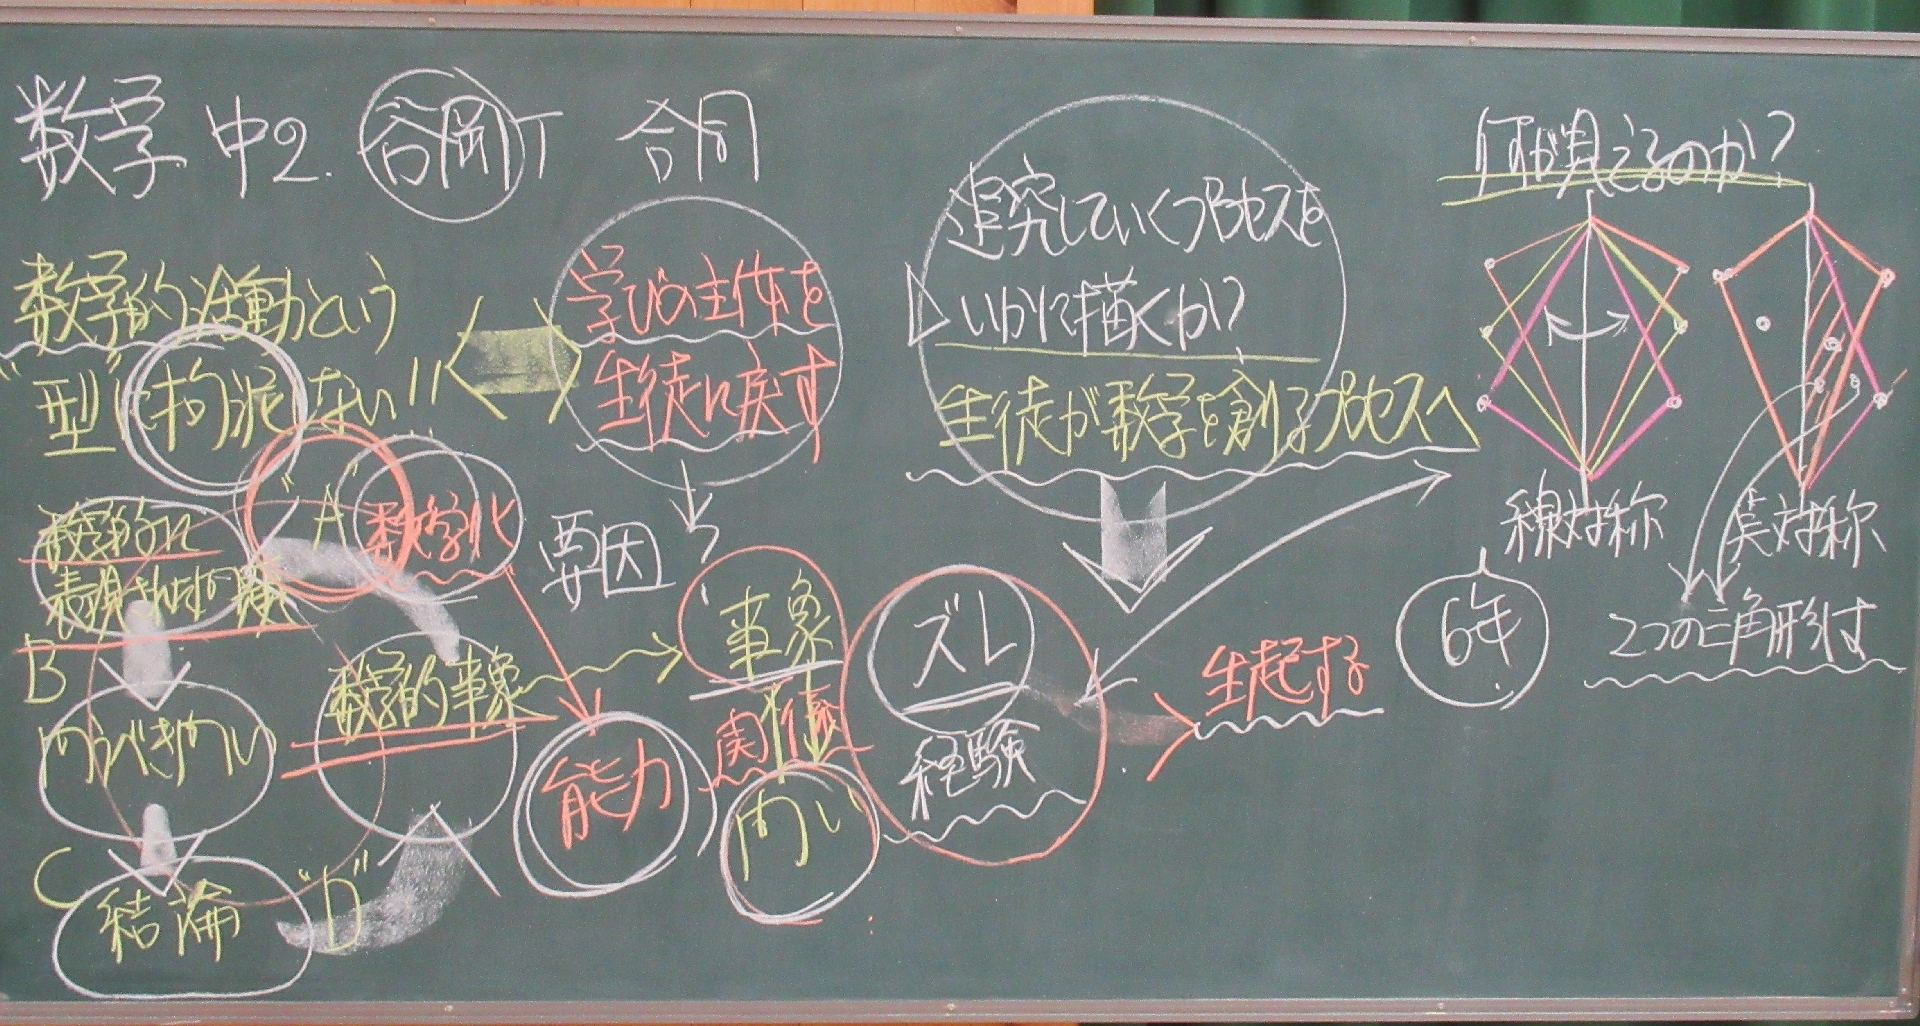 数学 中2. 谷岡T 合同
数学的活動という
"型"に拘泥ない!!
学びの主体を
生徒に戻す
追究していくプロセスを
いかに描くか?
生徒が数学を創るプロセスへ
何が見えるのか?
線対称
点対称
6年
2つの三角形は
"A"
数学化
数学的に
表現された問題
B
数学的事象
C
結論
"D"
要因
能力
事象
関係
問い
ズレ
経験
生起する